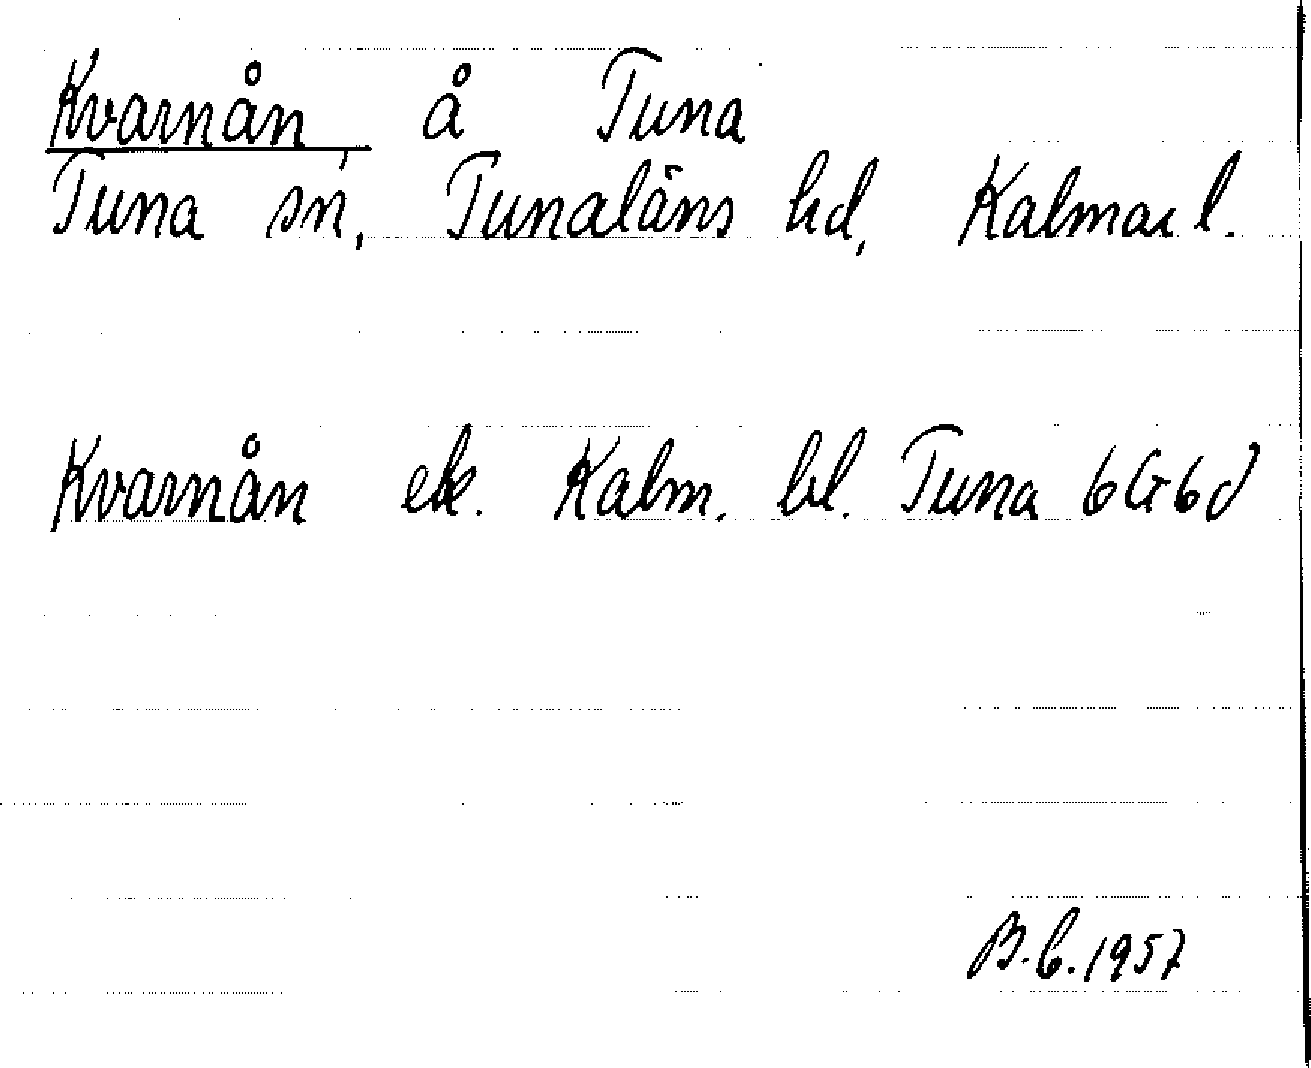 Kvarnån å Tuna
Tuna sn, Tunaläns hd, Kalmar l.
Kvarnån ek. Kalm. bl. Tuna 6G6d
B.b.1957